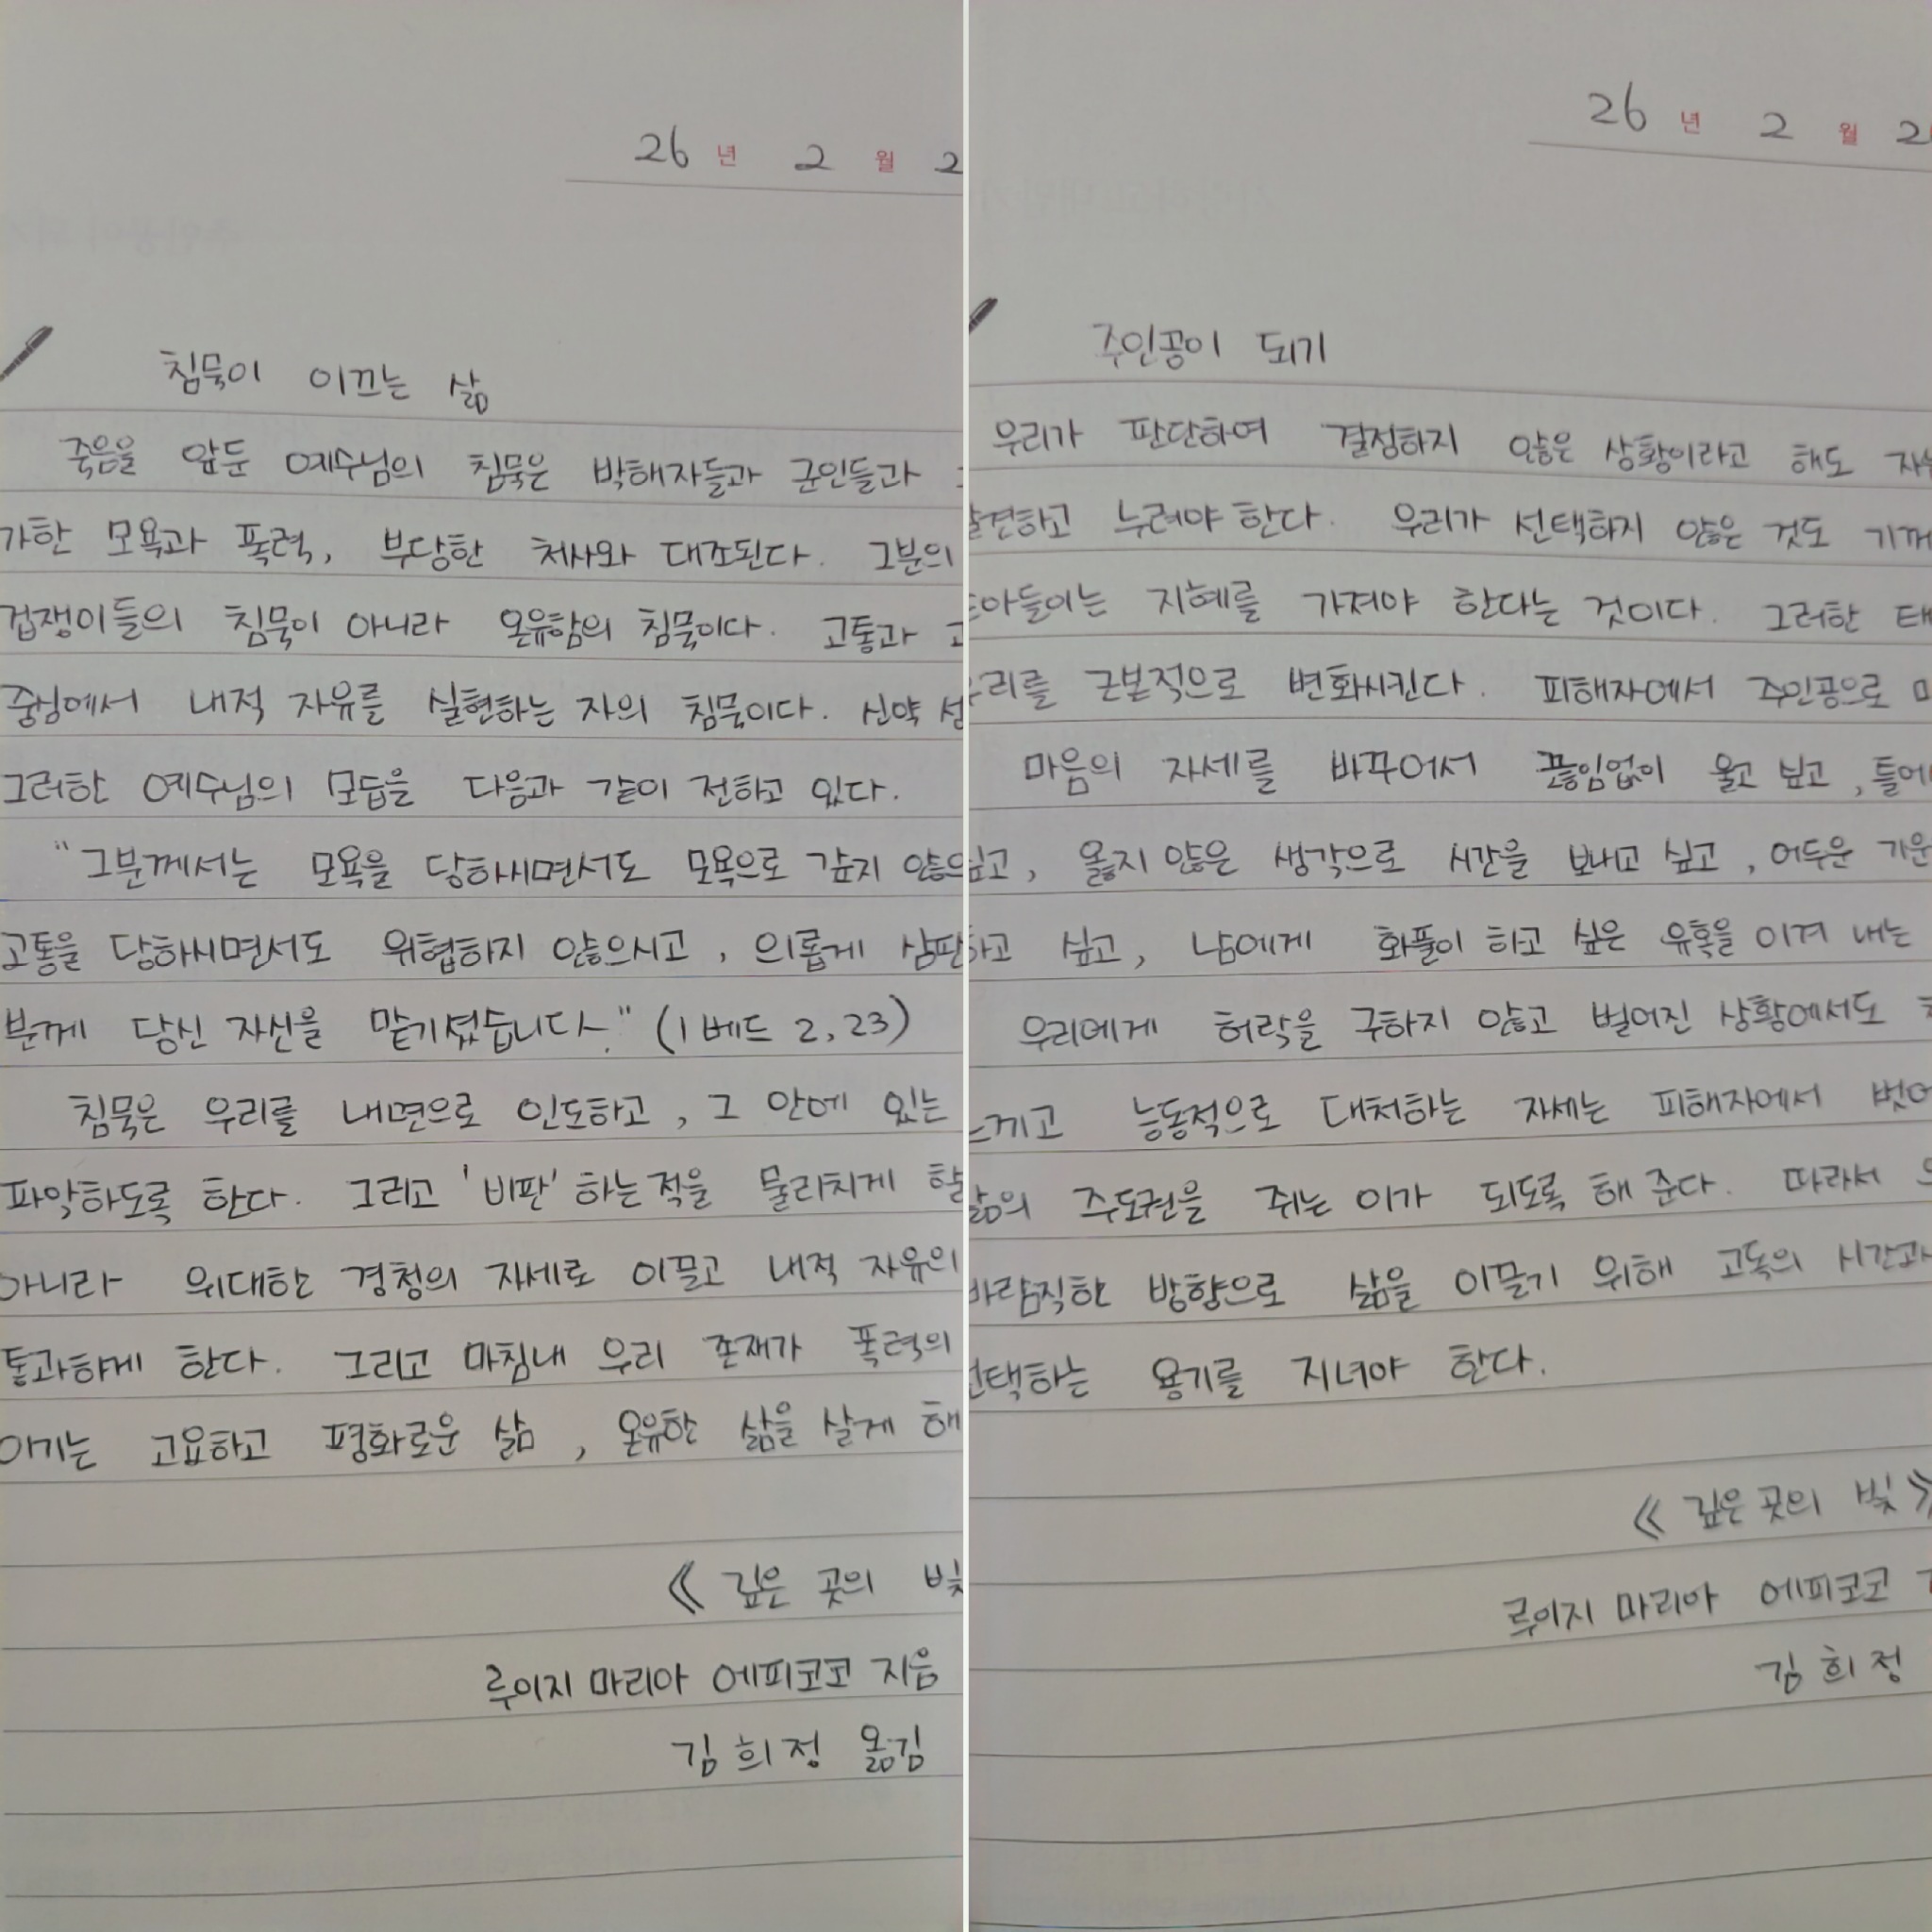 26 년 2 월 2
침묵이 이끄는 삶
죽음을 앞둔 예수님의 침묵은 박해자들과 군인들과
가한 모욕과 폭력, 부당한 처사와 대조된다. 그분의
겁쟁이들의 침묵이 아니라 온유함의 침묵이다. 고통과 고
중심에서 내적 자유를 실현하는 자의 침묵이다. 신약 성
그러한 예수님의 모습을 다음과 같이 전하고 있다.
"그분께서는 모욕을 당하시면서도 모욕으로 갚지 않으
고통을 당하시면서도 위협하지 않으시고, 의롭게 심판
분께 당신 자신을 맡기셨습니다." (1 베드 2, 23)
침묵은 우리를 내면으로 인도하고, 그 안에 있는
파악하도록 한다. 그리고 '비판' 하는 적을 물리치게 할
아니라 위대한 경청의 자세로 이끌고 내적 자유의
통과하게 한다. 그리고 마침내 우리 존재가 폭력의
이기는 고요하고 평화로운 삶, 온유한 삶을 살게 해
《 깊은 곳의 빛
루이지 마리아 에피코코 지음
김희정 옮김
26 년 2 월 2
주인공이 되기
우리가 판단하여 결정하지 않은 상황이라고 해도 자
발견하고 누려야 한다. 우리가 선택하지 않은 것도 기꺼
받아들이는 지혜를 가져야 한다는 것이다. 그러한 태
우리를 근본적으로 변화시킨다. 피해자에서 주인공으로
마음의 자세를 바꾸어서 끊임없이 울고 싶고, 틀에
싶고, 옳지 않은 생각으로 시간을 보내고 싶고, 어두운 기운
하고 싶고, 남에게 화풀이 하고 싶은 유혹을 이겨 내는
우리에게 허락을 구하지 않고 벌어진 상황에서도
느끼고 능동적으로 대처하는 자세는 피해자에서 벗어
삶의 주도권을 쥐는 이가 되도록 해 준다. 따라서
바람직한 방향으로 삶을 이끌기 위해 고독의 시간과
선택하는 용기를 지녀야 한다.
《 깊은 곳의 빛 》
루이지 마리아 에피코코
김희정